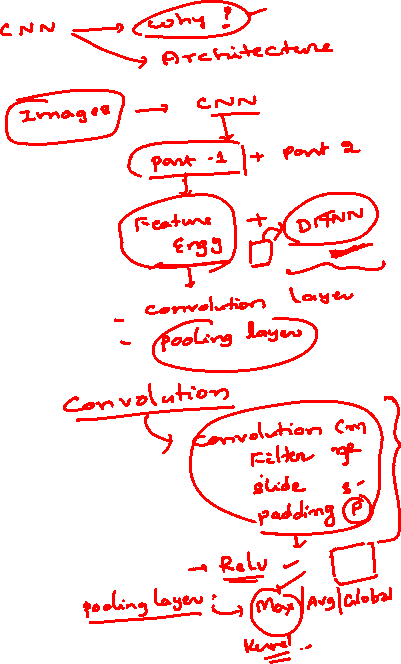 CNN why?
Architecture
Images CNN
part -1 + part 2
Feature Engg + DFNN
- convolution layer
- pooling layer
Convolution
convolution (m
Filter nf
slide s
padding P
Relu
pooling layer: Max | Avg | Global
Kernel ..